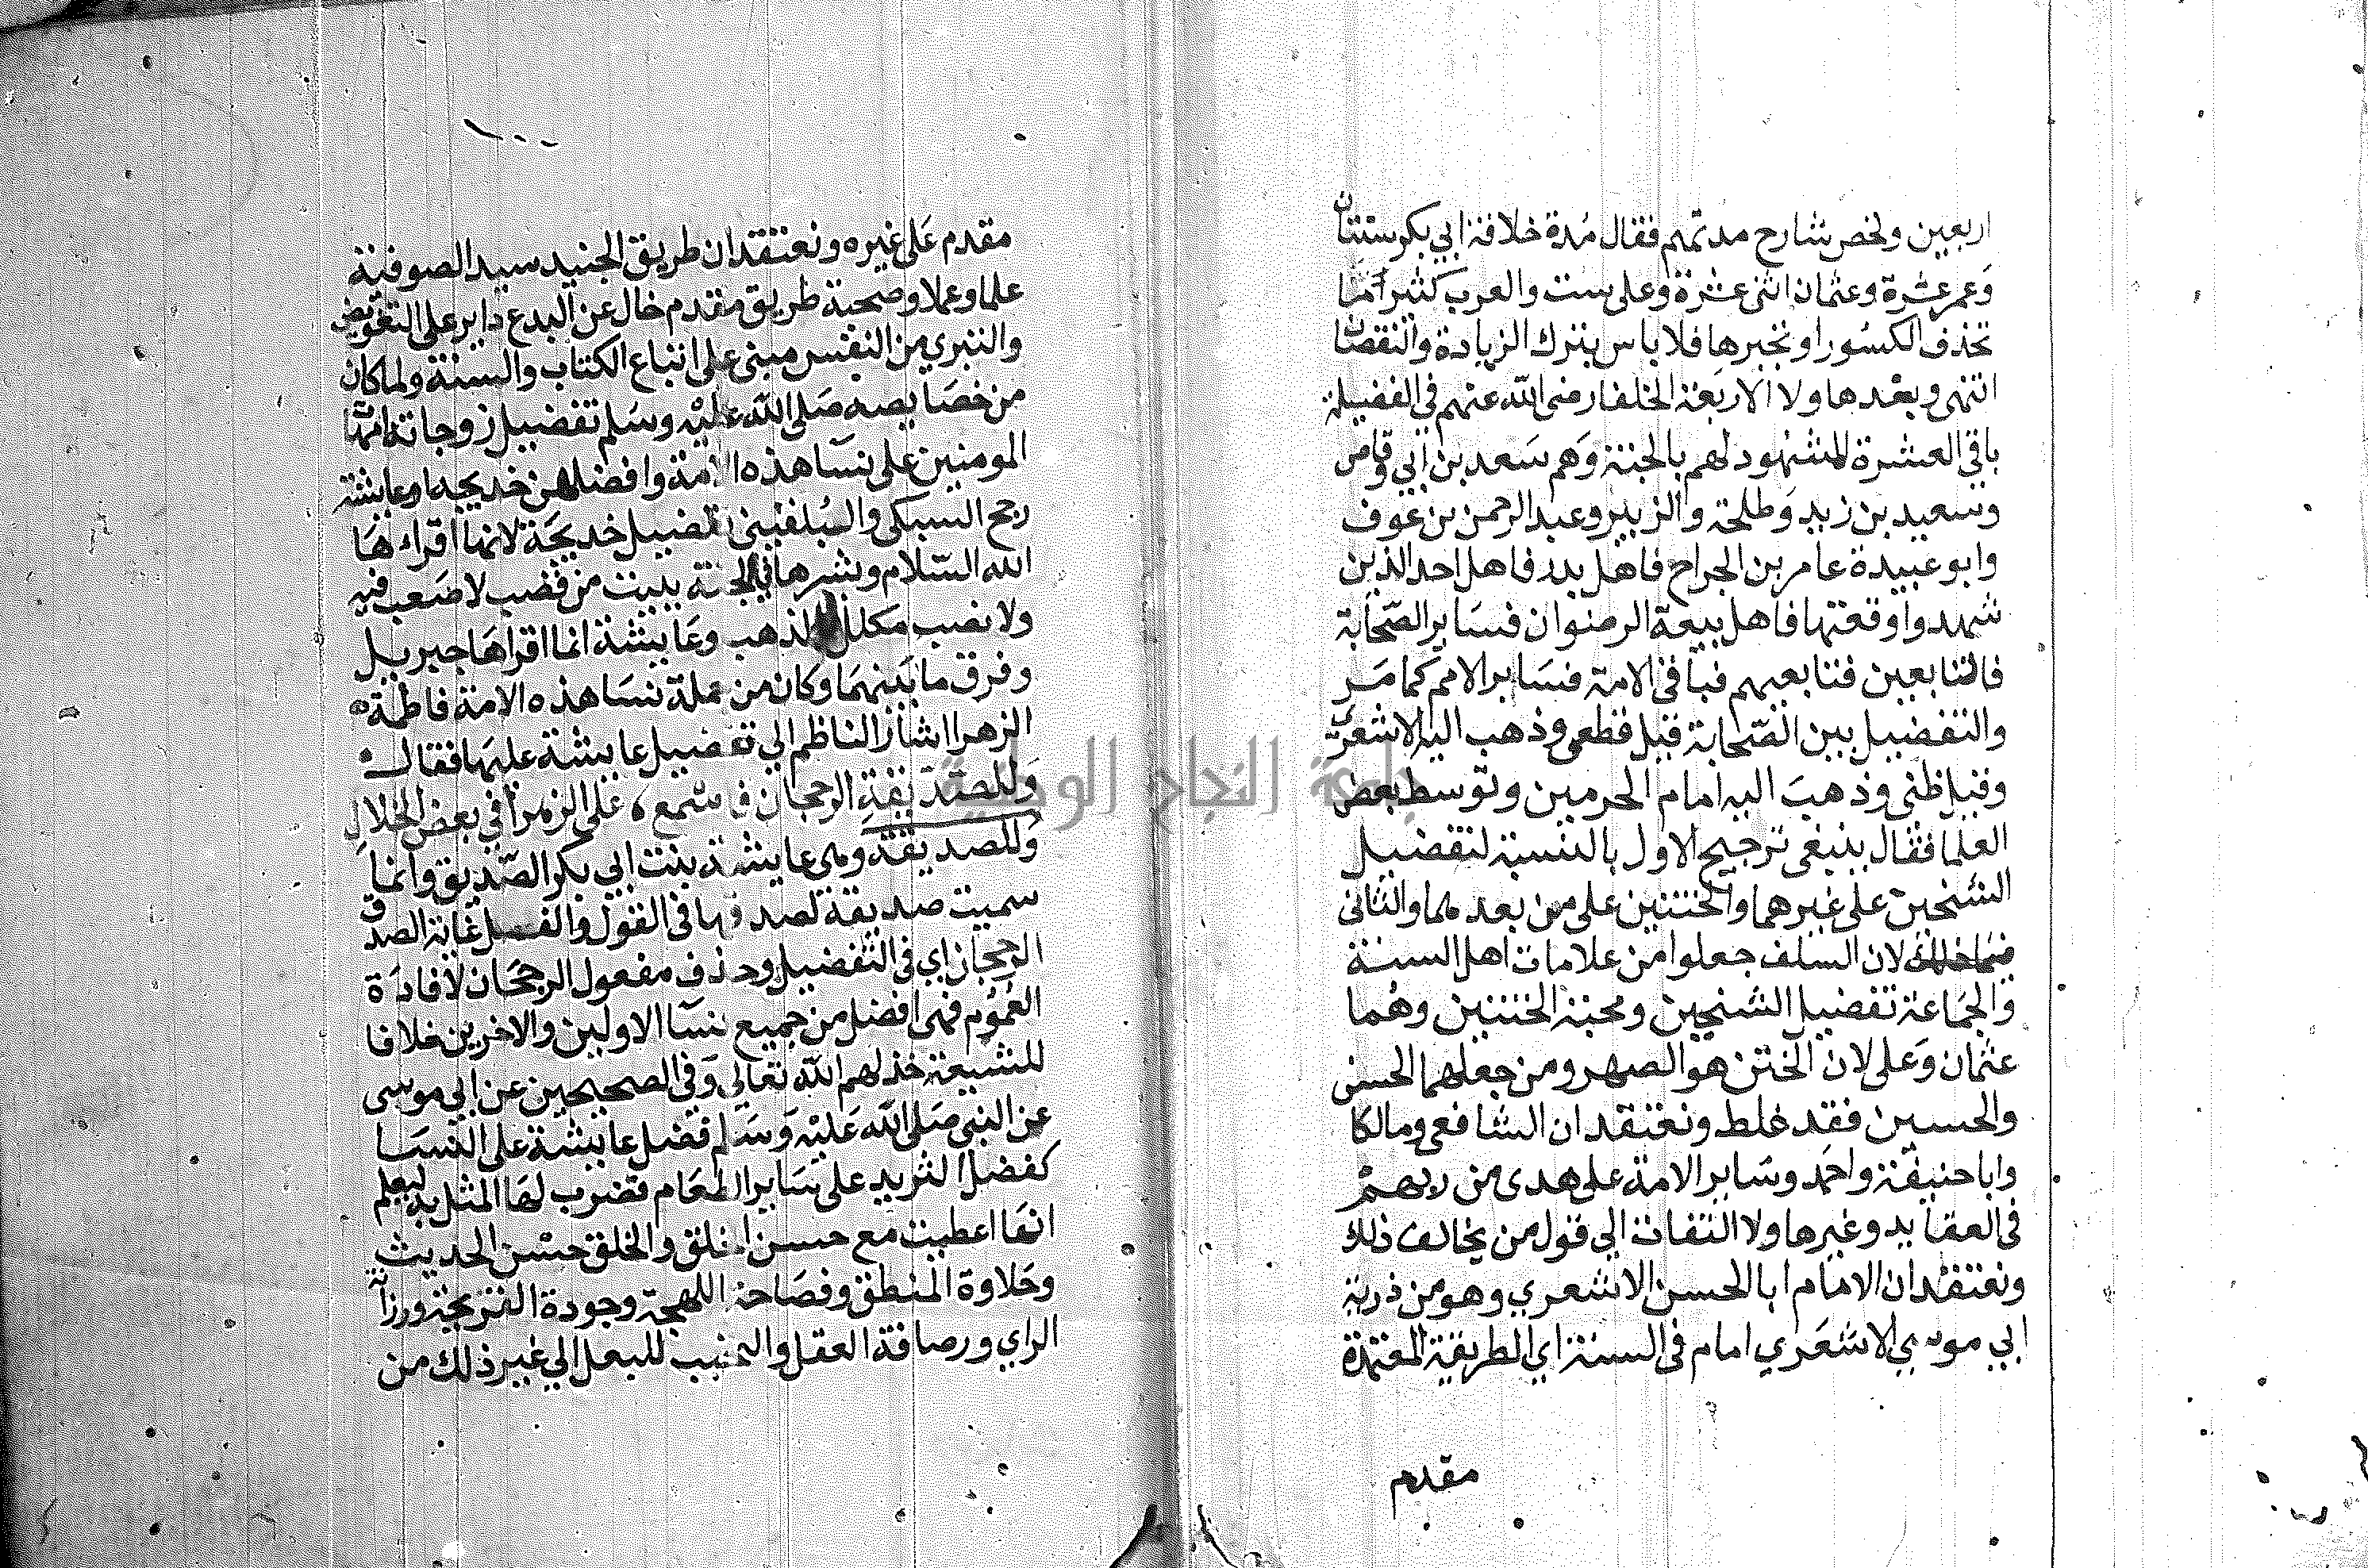 اربعين ولخص شارح مدتهم فقال مدة خلافة ابي بكر سنتان
وعمر عشرة وعثمان اثنى عشرة وعلى ست والعرب كثيرا ما
تحذف الكسور او تجبرها فلا باس بترك الزيادة والنقصان
انتهى وبعدها ولا الاربعة الخلفا رضى الله عنهم في الفضيلة
باقي العشرة المشهود لهم بالجنة وهم سعد بن ابي وقاص
وسعيد بن زيد وطلحة والزبير وعبد الرحمن بن عوف
وابو عبيدة عامر بن الجراح فاهل بدر فاهل احد الذين
شهدوا وقعتها فاهل بيعة الرضوان فساير الصحابة
فالتابعين فتابعيهم فباقى الامة فساير الامم كما مر
والتفضيل بين الصحابة قيل قطعى وذهب اليه الاشعرى
وقيل ظنى وذهب اليه امام الحرمين وتوسط بعض
العلما فقال ينبغى ترجيح الاول بالنسبة لتفضيل
الشيخين على غيرهما والختنين على من بعدهما والثانى
لان السلف جعلوا من علامات اهل السنة
والجماعة تفضيل الشيخين ومحبة الختنين وهما
عثمان وعلى لان الختن هو الصهر ومن جعلهما الحسن
والحسين فقد غلط ونعتقد ان الشافعى ومالكا
وابا حنيفة واحمد وساير الامة على هدى من ربهم
فى العقايد وغيرها ولا التفات الى قول من يخالف ذلك
ونعتقد ان الامام ابا الحسن الاشعري وهو من ذرية
ابي موسي الاشعري امام فى السنة اي الطريقة المعتمدة
مقدم
مقدم على غيره ونعتقد ان طريق الجنيد سيد الصوفية
علما وعملا وصحبة طريق مقدم خال عن البدع داير على التفويض
والتبري من النفس مبنى على اتباع الكتاب والسنة ولما كان
من خصايصه صلى الله عليه وسلم تفضيل زوجاته امهات
المومنين على نسا هذه الامة وافضلهن خديجة وعايشة
رجح السبكى والبلقينى تفضيل خديجة لانها اقراها
الله السلام وبشرها في الجنة ببيت من قصب لا صخب فيه
ولا نصب مكلل بالذهب وعايشة انما اقراها جبريل
وفرق ما بينهما وكان من جملة نسا هذه الامة فاطمة
الزهرا اشار الناظم الي تفضيل عايشة عليها فقال
وللصديقة الرجحان فاسمع على الزهرا في بعض الخلال
وللصديقة وهى عايشة بنت ابي بكر الصديق وانما
سميت صديقة لصدقها فى القول والفعل غاية الصدق
الرجحان اي فى التفضيل وحذف مفعول الرجحان لافادة
العموم فهى افضل من جميع نسا الاولين والاخرين خلافا
للشيعة خذلهم الله تعالي وفى الصحيحين عن ابي موسى
عن النبي صلى الله عليه وسلم فضل عايشة على النسا
كفضل الثريد على ساير الطعام فضرب لها المثل به ليعلم
انها اعطيت مع حسن الخلق والخلق حسن الحديث
وحلاوة المنطق وفصاحة اللهجة وجودة القريحة ورزانة
الراي ورصافة العقل والتحبب للبعل الي غير ذلك من